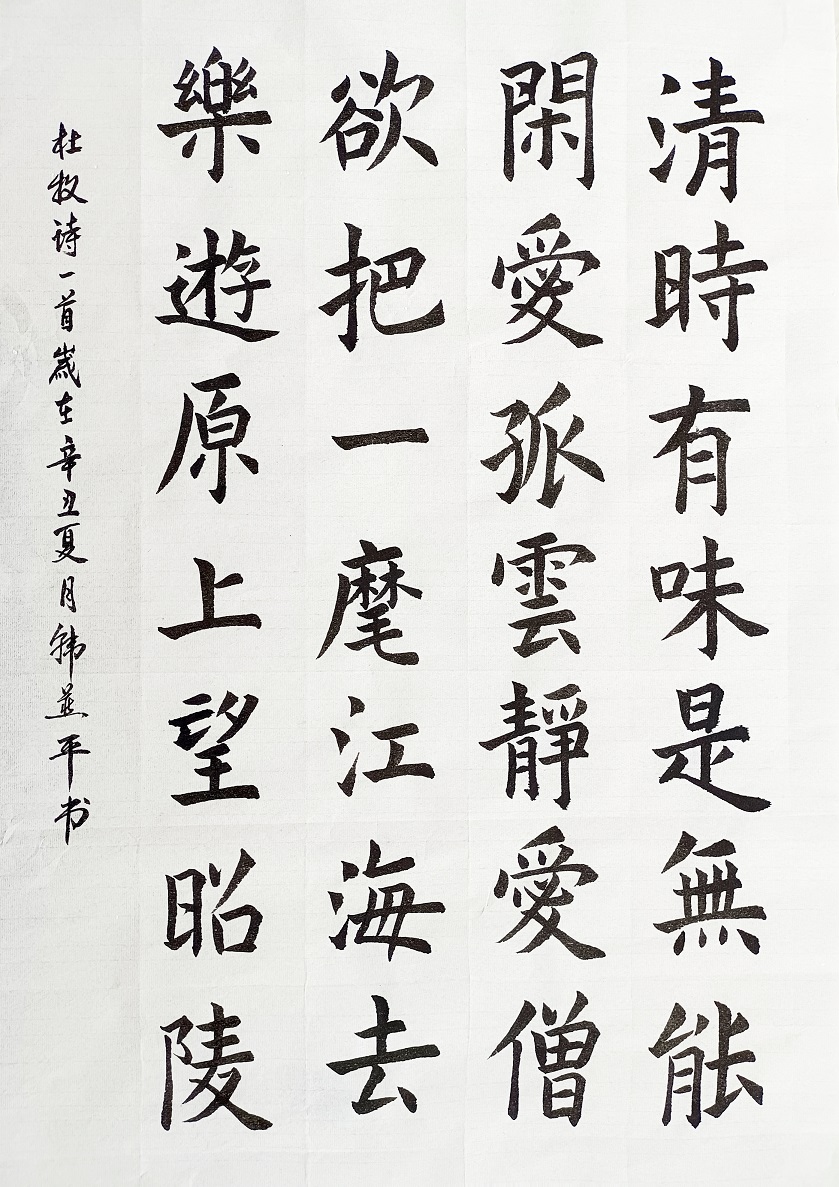 清時有味是無能
閑愛孤雲靜愛僧
欲把一麾江海去
樂遊原上望昭陵
杜牧诗一首歲在辛丑夏月韩益平书